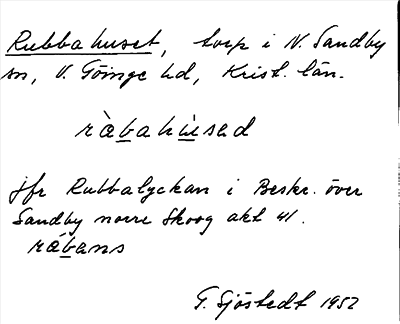 Rubbahuset, torp i N. Sandby
sn, V. Göinge hd, Krist. län.
ràbahùsed
jfr Rubbalyckan i Beskr. över
Sandby norre Skoog akt 41.
rábans
G. Sjöstedt 1952